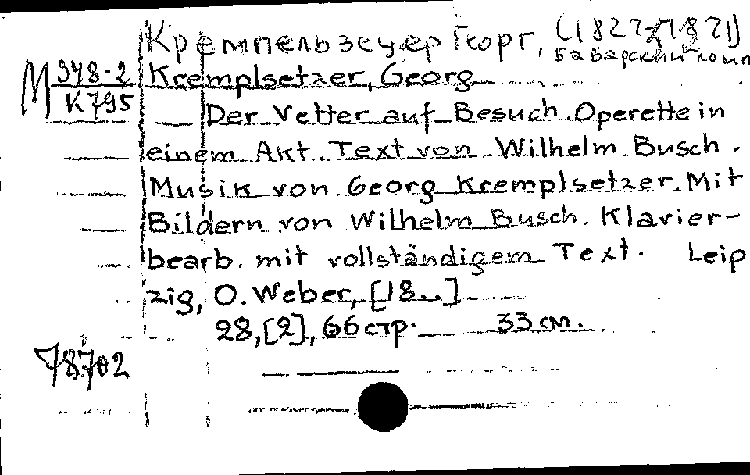 Кремпельзецер Георг, (1827-1871)
Баварский комп
М 948-2 Kremplsetzer, Georg
К 795 Der Vetter auf Besuch. Operette in
einem Akt. Text von Wilhelm Busch.
Musik von Georg Kremplsetzer. Mit
Bildern von Wilhelm Busch. Klavier-
bearb. mit vollständigem Text. Leip
zig, O. Weber, [18..]
28, [2], 66 стр. 33 см.
78702